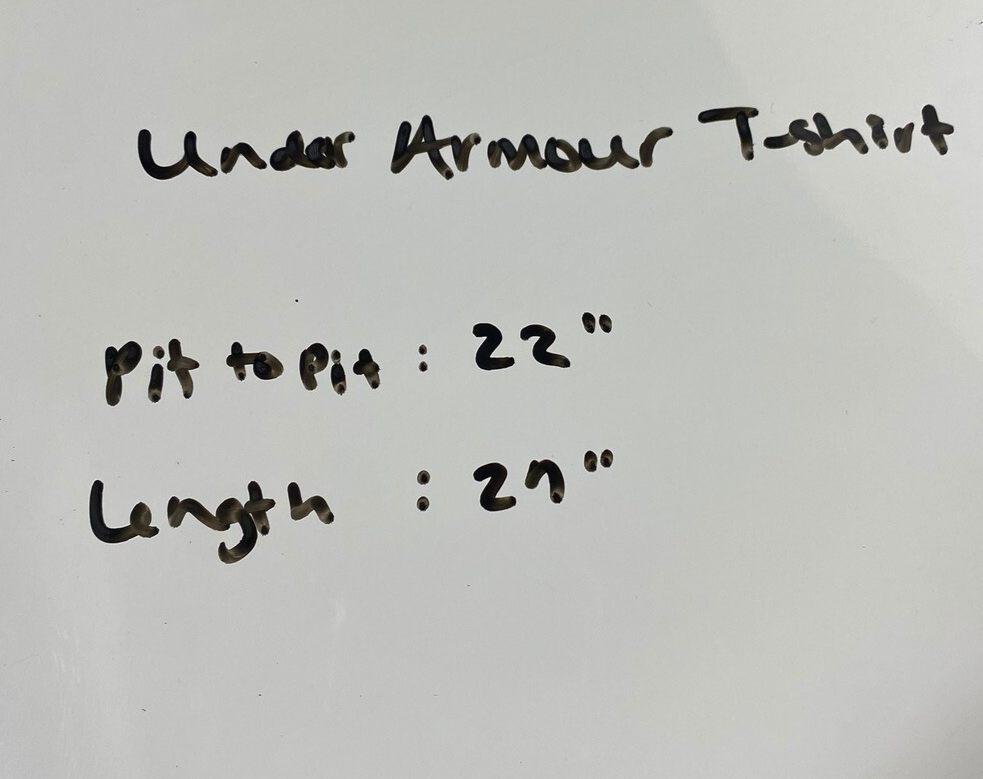 Under Armour T-shirt
Pit to Pit : 22"
Length : 27"